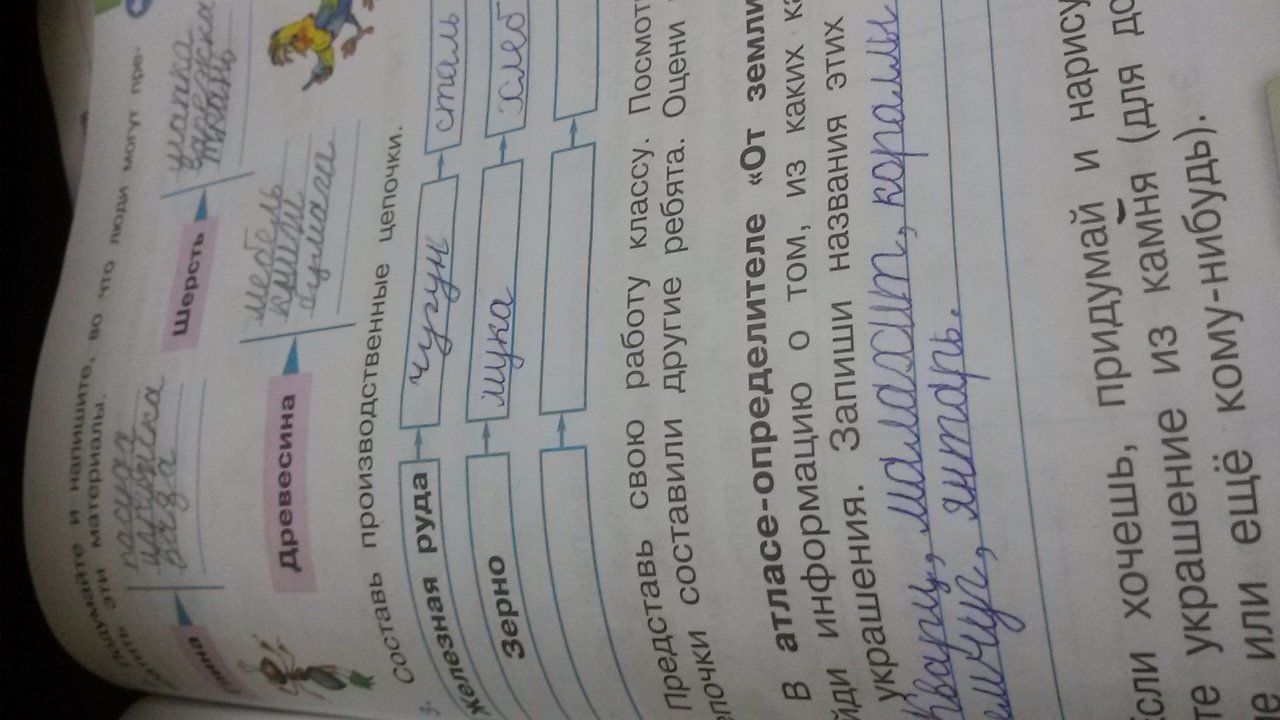 Подумайте и напишите, во что люди могут пре-
эти материалы.
посуда
игрушка
ваза
Шерсть
шапка
варежки
ткань
Древесина
мебель
книги
бумага
Составь производственные цепочки.
Железная руда
чугун
сталь
Зерно
мука
хлеб
Представь свою работу классу. Посмот
почки составили другие ребята. Оцени
В атласе-определителе «От земли
йди информацию о том, из каких ка
украшения. Запиши названия этих
Кварц, малахит, кораллы
емчуг, янтарь.
сли хочешь, придумай и нарису
те украшение из камня (для до
е или ещё кому-нибудь).